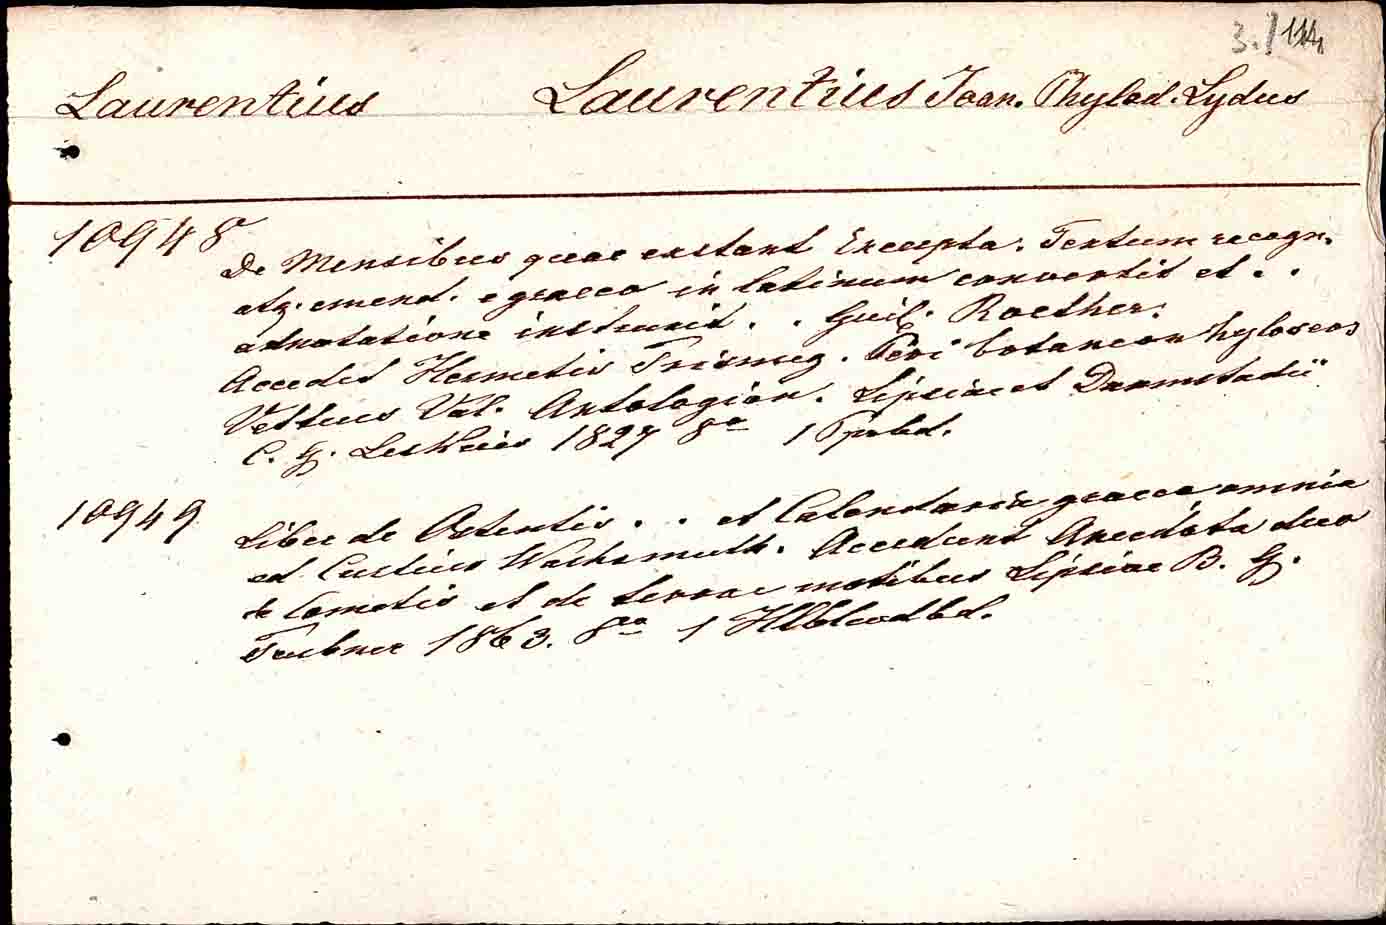 3. / 114,
Laurentius Laurentius Joan. Phylad. Lydus
10948
De Mensibus quae exstant Excerpta. Textum recogn.
atq. emend. e graeco in latinum convertit et . .
adnotatione instruxit . . Guil. Roether.
Accedit Hermetis Trismeg. Peri botaneon hyloseos
Vettius Val. Antologion. Lipsiae et Darmstadii
C. G. Leskius 1827 8o 1 Ppbd.
10949
Liber de Ostentis . . et Calendaria graeca omnia
ed. Curtius Wachsmuth. Accedunt Anecdota duo
de Cometis et de terrae motibus Lipsiae B. G.
Teubner 1863. 8o 1 Hlbldbd.